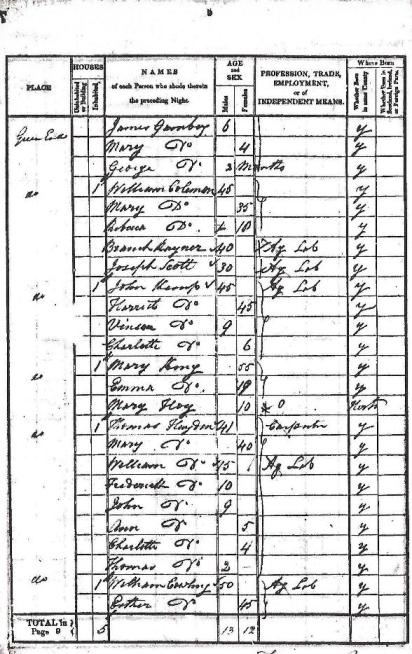 PLACE
HOUSES
Uninhabited or Building
Inhabited
NAMES
of each Person who abode therein the preceding Night.
AGE and SEX
Males
Females
PROFESSION, TRADE, EMPLOYMENT, or of INDEPENDENT MEANS.
Where Born
Whether Born in same County
Whether Born in Scotland, Ireland, or Foreign Parts.
Green End James 6 y
Mary Do 4 y
George Do 2 Months y
do 1 William Coleman 45 y
Mary Do 35 y
Rebecca Do 18 y
Branch Rayner 40 Ag Lab y
Joseph Scott 30 Ag Lab y
do 1 John Kemp 45 Ag Lab y
Harriet Do 45 y
Vinson Do 9 y
Charlotte Do 6 y
do 1 Mary King 55 y
Emma Do 18 y
Mary 10 North
do 1 Thomas Haydon 41 Carpenter y
Mary Do 40 y
William Do 15 Ag Lab y
Frederick Do 10 y
John Do 9 y
Ann Do 5 y
Charlotte Do 4 y
Thomas Do 2 y
do 1 William 50 Ag Lab y
Esther Do 45 y
TOTAL in Page 9 5 13 12